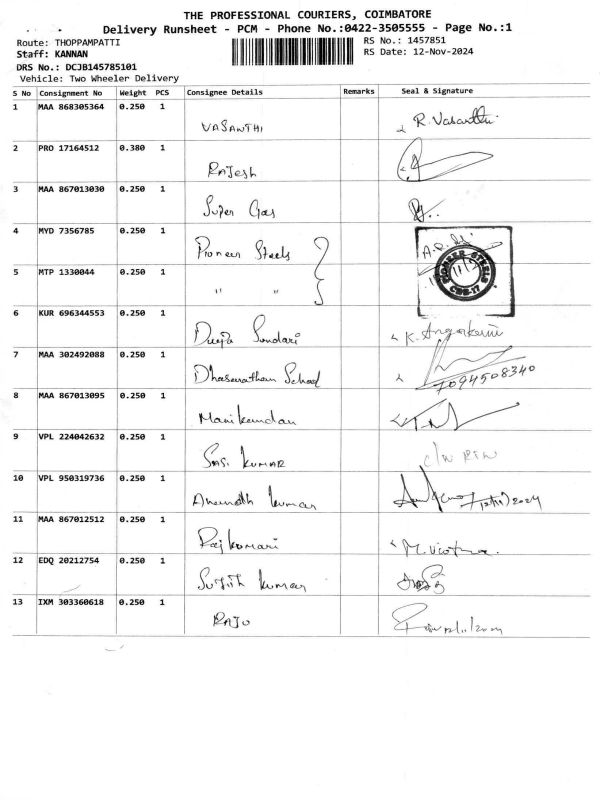 THE PROFESSIONAL COURIERS, COIMBATORE
Delivery Runsheet - PCM - Phone No.:0422-3505555 - Page No.:1
Route: THOPPAMPATTI RS No.: 1457851
Staff: KANNAN RS Date: 12-Nov-2024
DRS No.: DCJB145785101
Vehicle: Two Wheeler Delivery
S No Consignment No Weight PCS Consignee Details Remarks Seal & Signature
1 MAA 868305364 0.250 1
VASANTHI R. Vasanthi
2 PRO 17164512 0.380 1
RAJesh
3 MAA 867013030 0.250 1
Super Gas
4 MYD 7356785 0.250 1
Pioneer Steels
PIONEER STEELS
CBE-17
5 MTP 1330044 0.250 1
" "
6 KUR 696344553 0.250 1
Sundari K.
7 MAA 302492088 0.250 1
School 7094508340
8 MAA 867013095 0.250 1
Manikandan
9 VPL 224042632 0.250 1
SASI KUMAR
10 VPL 950319736 0.250 1
Kumar 2024
11 MAA 867012512 0.250 1
Rajkumari M.
12 EDQ 20212754 0.250 1
Sujith Kumar
13 IXM 303360618 0.250 1
RAJU